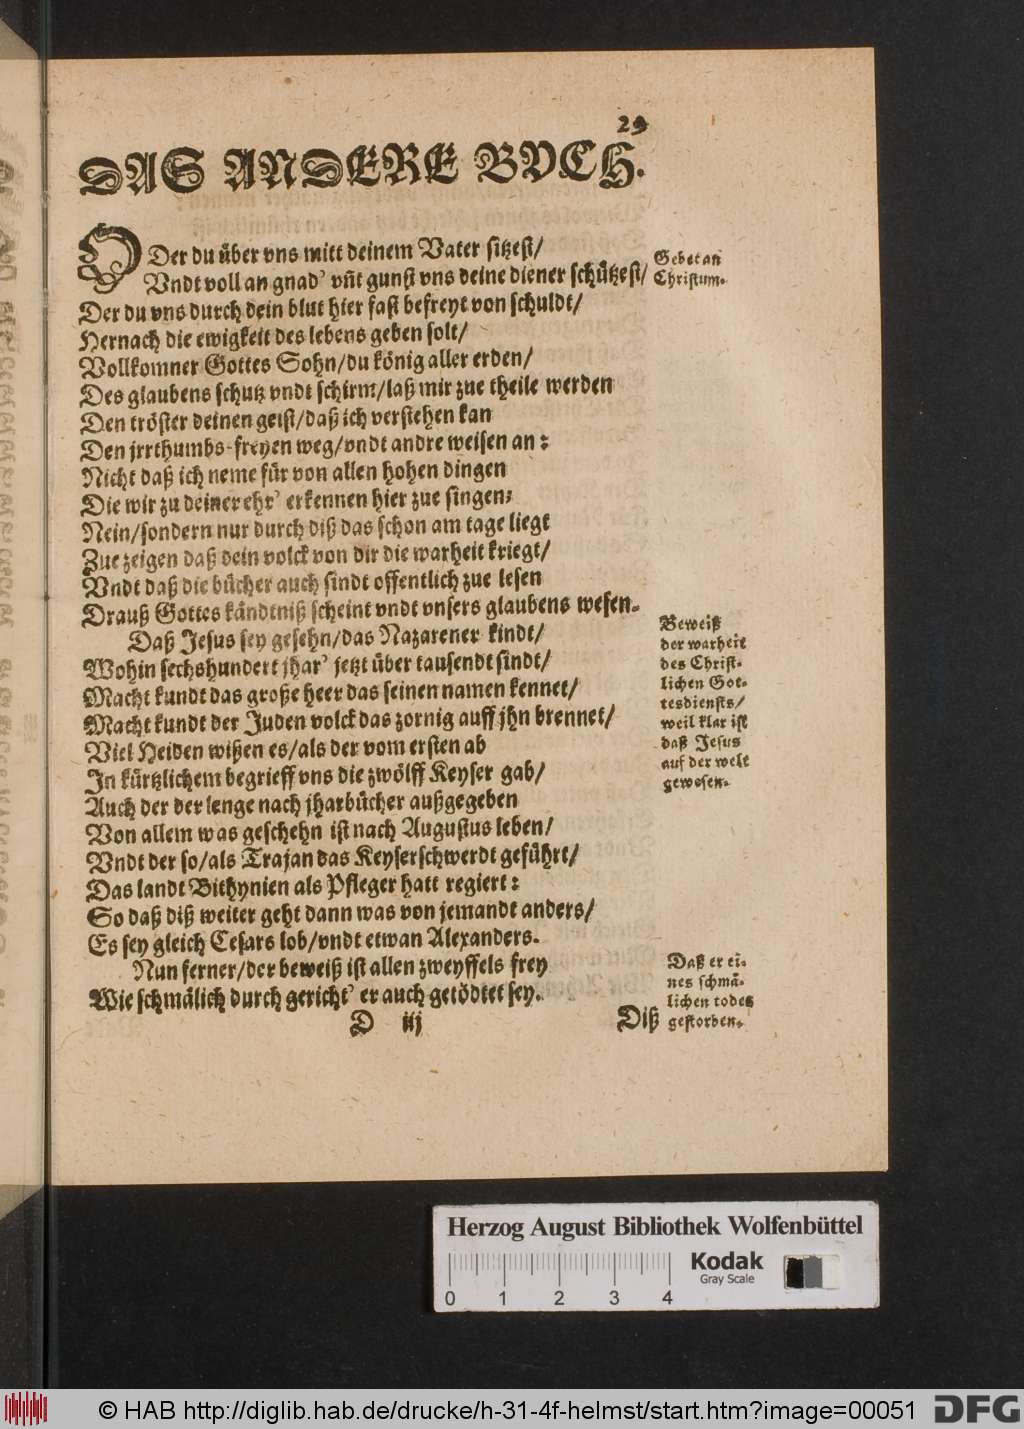 29
DAS ANDERE BVCH.
O Der du über vns mitt deinem Vater sitzest/
Vndt voll an gnad' vñt gunst vns deine diener schützest/
Gebet an
Christum.
Der du vns durch dein blut hier fast befreyt von schuldt/
Hernach die ewigkeit des lebens geben solt/
Vollkomner Gottes Sohn/du könig aller erden/
Des glaubens schutz vndt schirm/laß mir zue theile werden
Den tröster deinen geist/daß ich verstehen kan
Den jrrthumbs-freyen weg/vndt andre weisen an:
Nicht daß ich neme für von allen hohen dingen
Die wir zu deiner ehr' erkennen hier zue singen;
Nein/sondern nur durch diß das schon am tage liegt
Zue zeigen daß dein volck von dir die warheit kriegt/
Vndt daß die bücher auch sindt offentlich zue lesen
Drauß Gottes kändtniß scheint vndt vnsers glaubens wesen.
Daß Jesus sey gesehn/das Nazarener kindt/
Wohin sechshundert jhar' jetzt über tausendt sindt/
Macht kundt das große heer das seinen namen kennet/
Macht kundt der Juden volck das zornig auff jhn brennet/
Viel Heiden wißen es/als der vom ersten ab
In kürtzlichem begrieff vns die zwölff Keyser gab/
Auch der der lenge nach jharbücher außgegeben
Von allem was geschehn ist nach Augustus leben/
Vndt der so/als Trajan das Keyserschwerdt geführt/
Das landt Bithynien als Pfleger hatt regiert:
So daß diß weiter geht dann was von jemandt anders/
Es sey gleich Cesars lob/vndt etwan Alexanders.
Beweiß
der warheit
des Christ-
lichen Got-
tesdiensts/
weil klar ist
daß Jesus
auf der welt
gewesen.
Nun ferner/der beweiß ist allen zweyffels frey
Wie schmälich durch gericht' er auch getödtet sey.
Daß er ei-
nes schmä-
lichen todes
gestorben.
D iij
Diß
Herzog August Bibliothek Wolfenbüttel
Kodak
Gray Scale
0 1 2 3 4
© HAB http://diglib.hab.de/drucke/h-31-4f-helmst/start.htm?image=00051
DFG